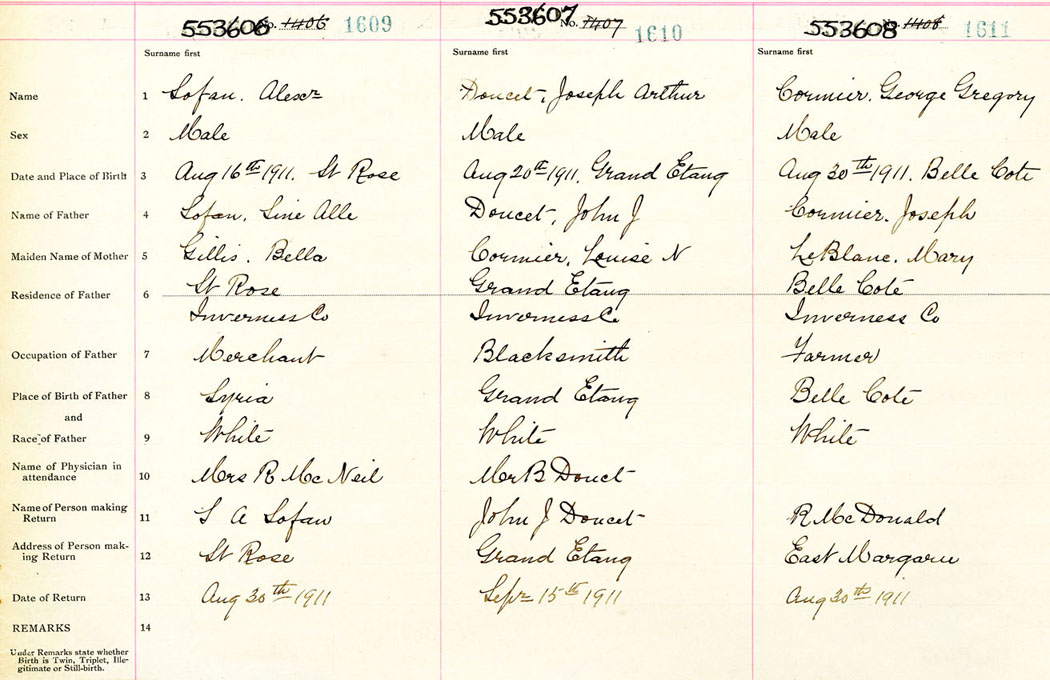 553606 No. 1406 1609 553607 No. 1407 1610 553608 No. 1408 1611
Surname first Surname first Surname first
Name 1 Sofan. Alexr Doucet, Joseph Arthur Cormier. George Gregory
Sex 2 Male Male Male
Date and Place of Birth 3 Aug 16th 1911. St Rose Aug 20th 1911. Grand Etang Aug 30th 1911. Belle Cote
Name of Father 4 Sofan. Sine Alle Doucet, John J Cormier. Joseph
Maiden Name of Mother 5 Gillis. Bella Cormier, Louise N LeBlanc. Mary
Residence of Father 6 St Rose Grand Etang Belle Cote
Inverness Co Inverness Co Inverness Co
Occupation of Father 7 Merchant Blacksmith Farmer
Place of Birth of Father 8 Syria Grand Etang Belle Cote
and
Race of Father 9 White White White
Name of Physician in
attendance 10 Mrs R McNeil Mrs B Doucet
Name of Person making
Return 11 S A Sofan John J Doucet R McDonald
Address of Person mak-
ing Return 12 St Rose Grand Etang East Margaree
Date of Return 13 Aug 30th 1911 Sept 15th 1911 Aug 30th 1911
REMARKS 14
Under Remarks state whether
Birth is Twin, Triplet, Ille-
gitimate or Still-birth.